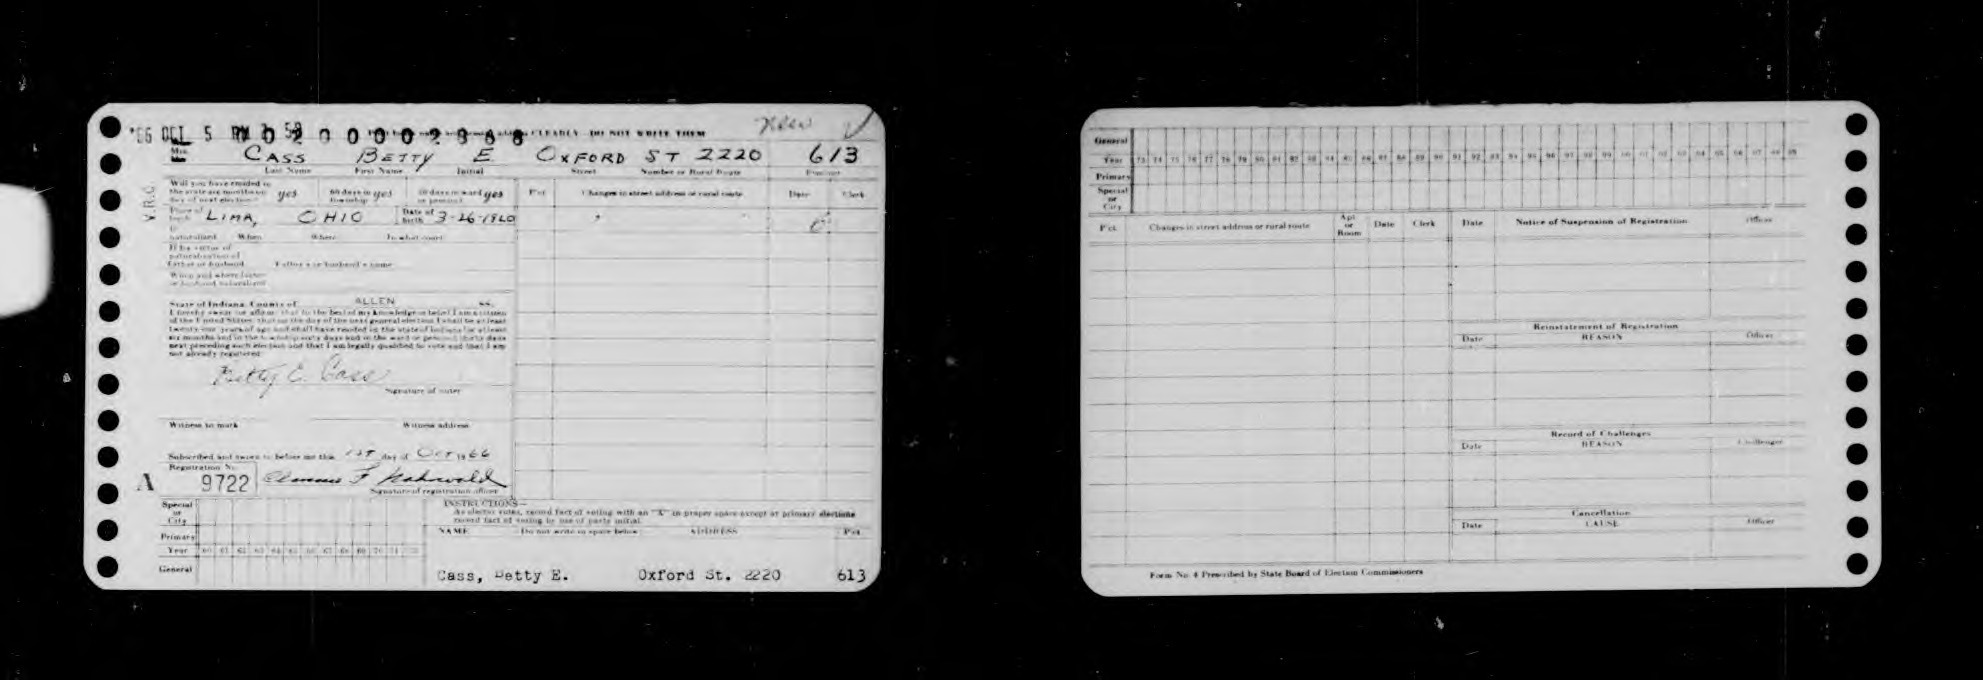 '66 OCT 5 PM 3 58 0200002868 CLEARLY DO NOT WRITE THEM New
Mrs. CASS BETTY E OXFORD ST 2220 613
Last Name First Name Initial Street Number or Rural Route Precinct
V.R.C.
Will you have resided in the state six months on day of next election? yes 60 days in township yes 30 days in ward or precinct yes
P'ct Changes in street address or rural route Date Clerk
Place of birth LIMA, OHIO Date of birth 3-26-1920
If naturalized When Where In what court
If by virtue of naturalization of Father or husband Father's or husband's name
When and where father or husband naturalized
State of Indiana, County of ALLEN ss.
I hereby swear (or affirm) that to the best of my knowledge or belief I am a citizen
of the United States, that on the day of the next general election I shall be at least
twenty-one years of age and shall have resided in the state of Indiana for at least
six months and in the township sixty days and in the ward or precinct thirty days
next preceding such election and that I am legally qualified to vote and that I am
not already registered.
Betty E. Cass
Signature of voter
Witness to mark Witness address
Subscribed and sworn to before me this 1st day of OCT 1966
Registration No.
A 9722
Signature of registration officer
Special or City
Primary
Year 60 61 62 63 64 65 66 67 68 69 70 71 72
General
INSTRUCTIONS—
As elector votes, record fact of voting with an "X" in proper space except at primary elections
record fact of voting by use of party initial.
NAME Do not write in space below ADDRESS P'ct
Cass, Betty E. Oxford St. 2220 613
General
Year 73 74 75 76 77 78 79 80 81 82 83 84 85 86 87 88 89 90 91 92 93 94 95 96 97 98 99 00 01 02 03 04 05 06 07 08 09
Primary
Special or City
P'ct Changes in street address or rural route Apt or Room Date Clerk Date Notice of Suspension of Registration Officer
Reinstatement of Registration
Date REASON Officer
Record of Challenges
Date REASON Challenger
Cancellation
Date CAUSE Officer
Form No. 4 Prescribed by State Board of Election Commissioners